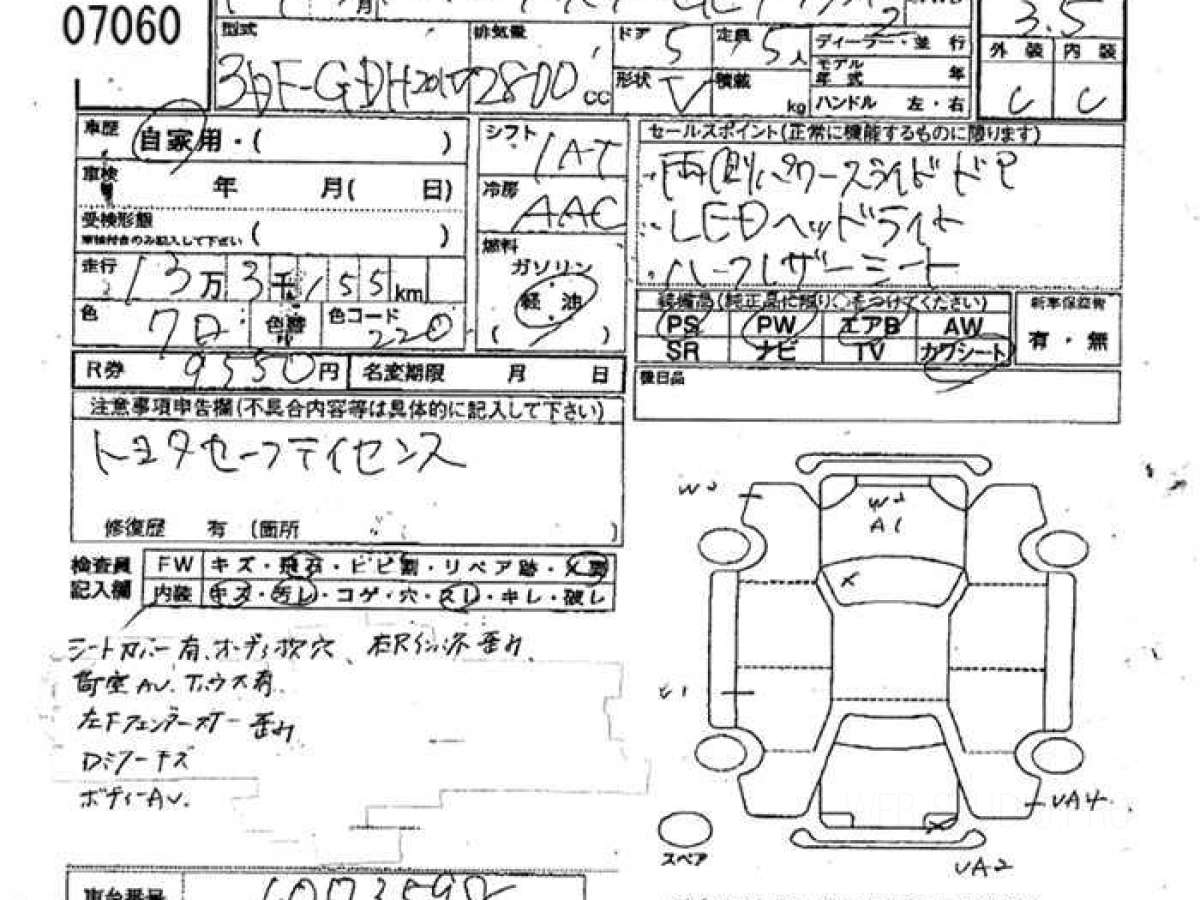 07060
月
2
3.5
型式 3DF-GDH201V
排気量 2800 cc
ドア 5
定員 5人
形状 V
積載 kg
ディーラー・並行
モデル年式 年
ハンドル 左・右
外装 内装
C C
車歴 自家用・( )
車検 年 月( 日)
受検形態
車検付合のみ記入して下さい ( )
走行 13万3千155km
色 7D 色替 色コード 220
シフト IAT
冷房 AAC
燃料
ガソリン
軽油
( )
セールスポイント(正常に機能するものに限ります)
両側パワースライドドア
LEDヘッドライト
ハーフレザーシート
装備品(純正品に限り○をつけてください)
PS PW エアB AW
SR ナビ TV カワシート
新車保証書
有・無
R券 9550円 名変期限 月 日
後日品
注意事項申告欄(不具合内容等は具体的に記入して下さい)
トヨタセーフティセンス
修復歴 有 (箇所 )
検査員記入欄
FW キズ・飛石・ヒビ割・リペア跡・X要
内装 キズ・汚レ・コゲ・穴・スレ・キレ・破レ
シートカバー有、オーディオ次穴、右Rインパネ歪み
荷室AU、Tハウス有
左Fフェンダーステー歪み
Dミラーキズ
ボディーAU.
W2
W2
A1
X
U1
UA4
X
UA2
スペア
車台番号